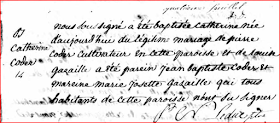 nous soussigné a été baptisée Catherine née
B 1
Catherine
Coder
14
aujourd'hui du légitime mariage de pierre
coder cultivateur en cette paroisse et de Louise
gazaille a été parein jean baptiste coder et
mareine marie josette gazaille qui tous
habitants de cette paroisse n'ont su signer